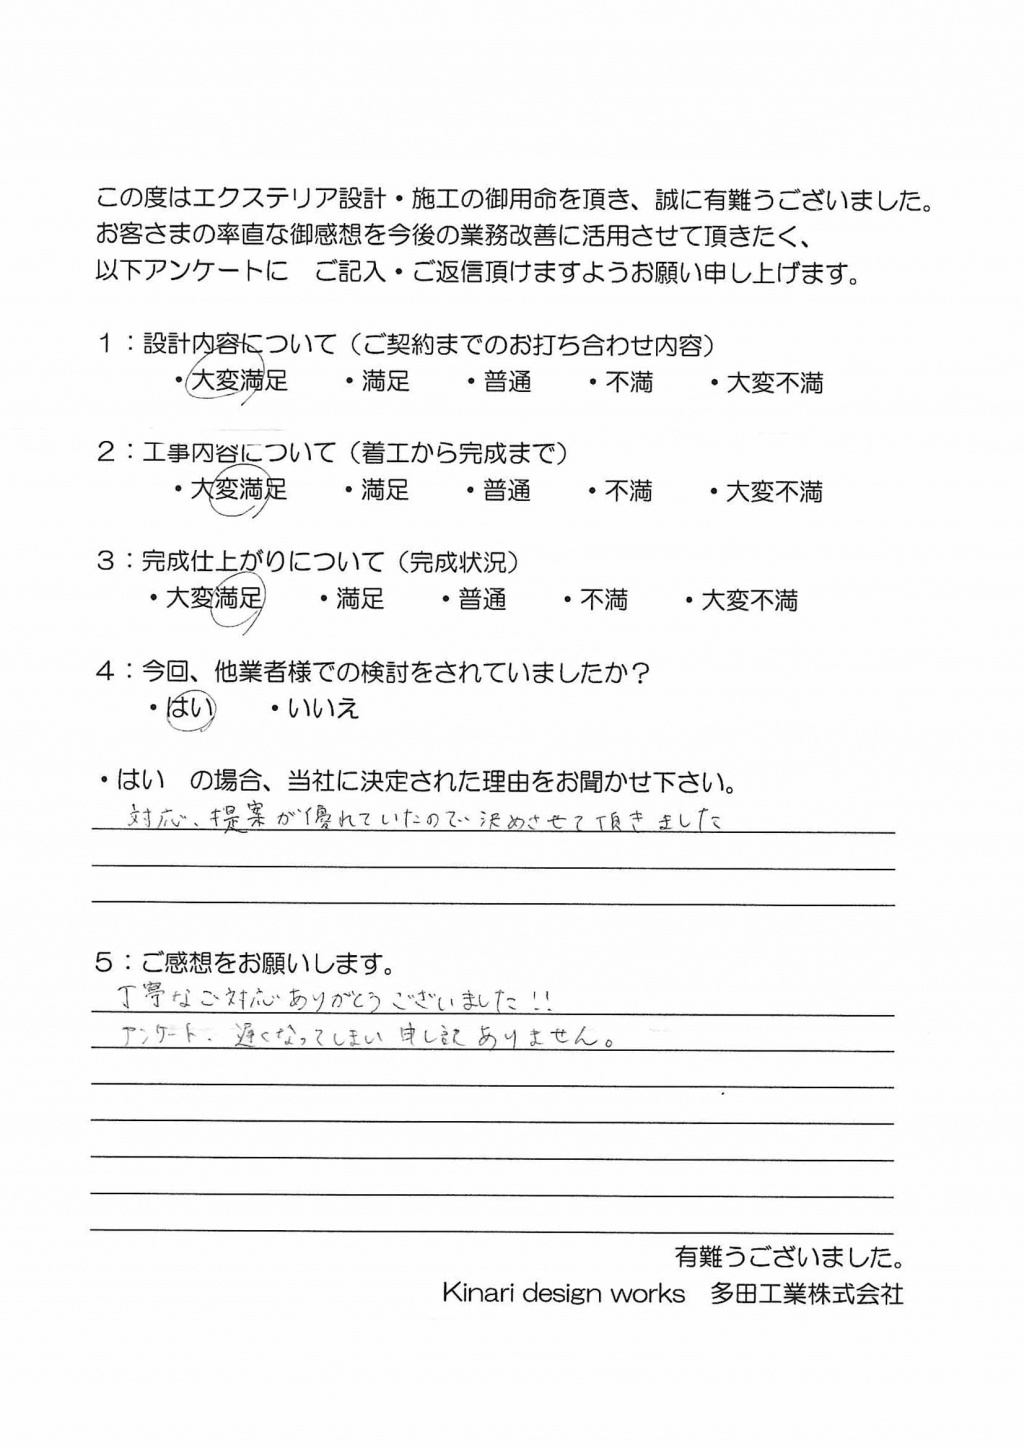 この度はエクステリア設計・施工の御用命を頂き、誠に有難うございました。
お客さまの率直な御感想を今後の業務改善に活用させて頂きたく、
以下アンケートに　ご記入・ご返信頂けますようお願い申し上げます。
１：設計内容について（ご契約までのお打ち合わせ内容）
・大変満足　・満足　・普通　・不満　・大変不満
２：工事内容について（着工から完成まで）
・大変満足　・満足　・普通　・不満　・大変不満
３：完成仕上がりについて（完成状況）
・大変満足　・満足　・普通　・不満　・大変不満
４：今回、他業者様での検討をされていましたか？
・はい　・いいえ
・はい　の場合、当社に決定された理由をお聞かせ下さい。
対応、提案が優れていたので決めさせて頂きました
５：ご感想をお願いします。
丁寧なご対応ありがとうございました!!
アンケート、遅くなってしまい申し訳ありません。
有難うございました。
Kinari design works　多田工業株式会社